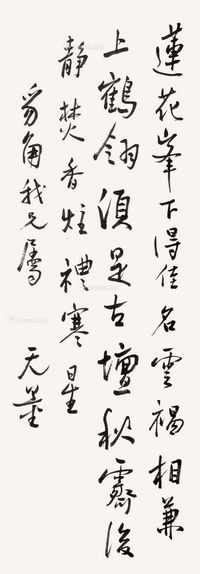 蓮花峯下得佳名雲褐相兼
上鶴翎須是古壇秋霽後
靜焚香炷禮寒星
角我兄屬 天